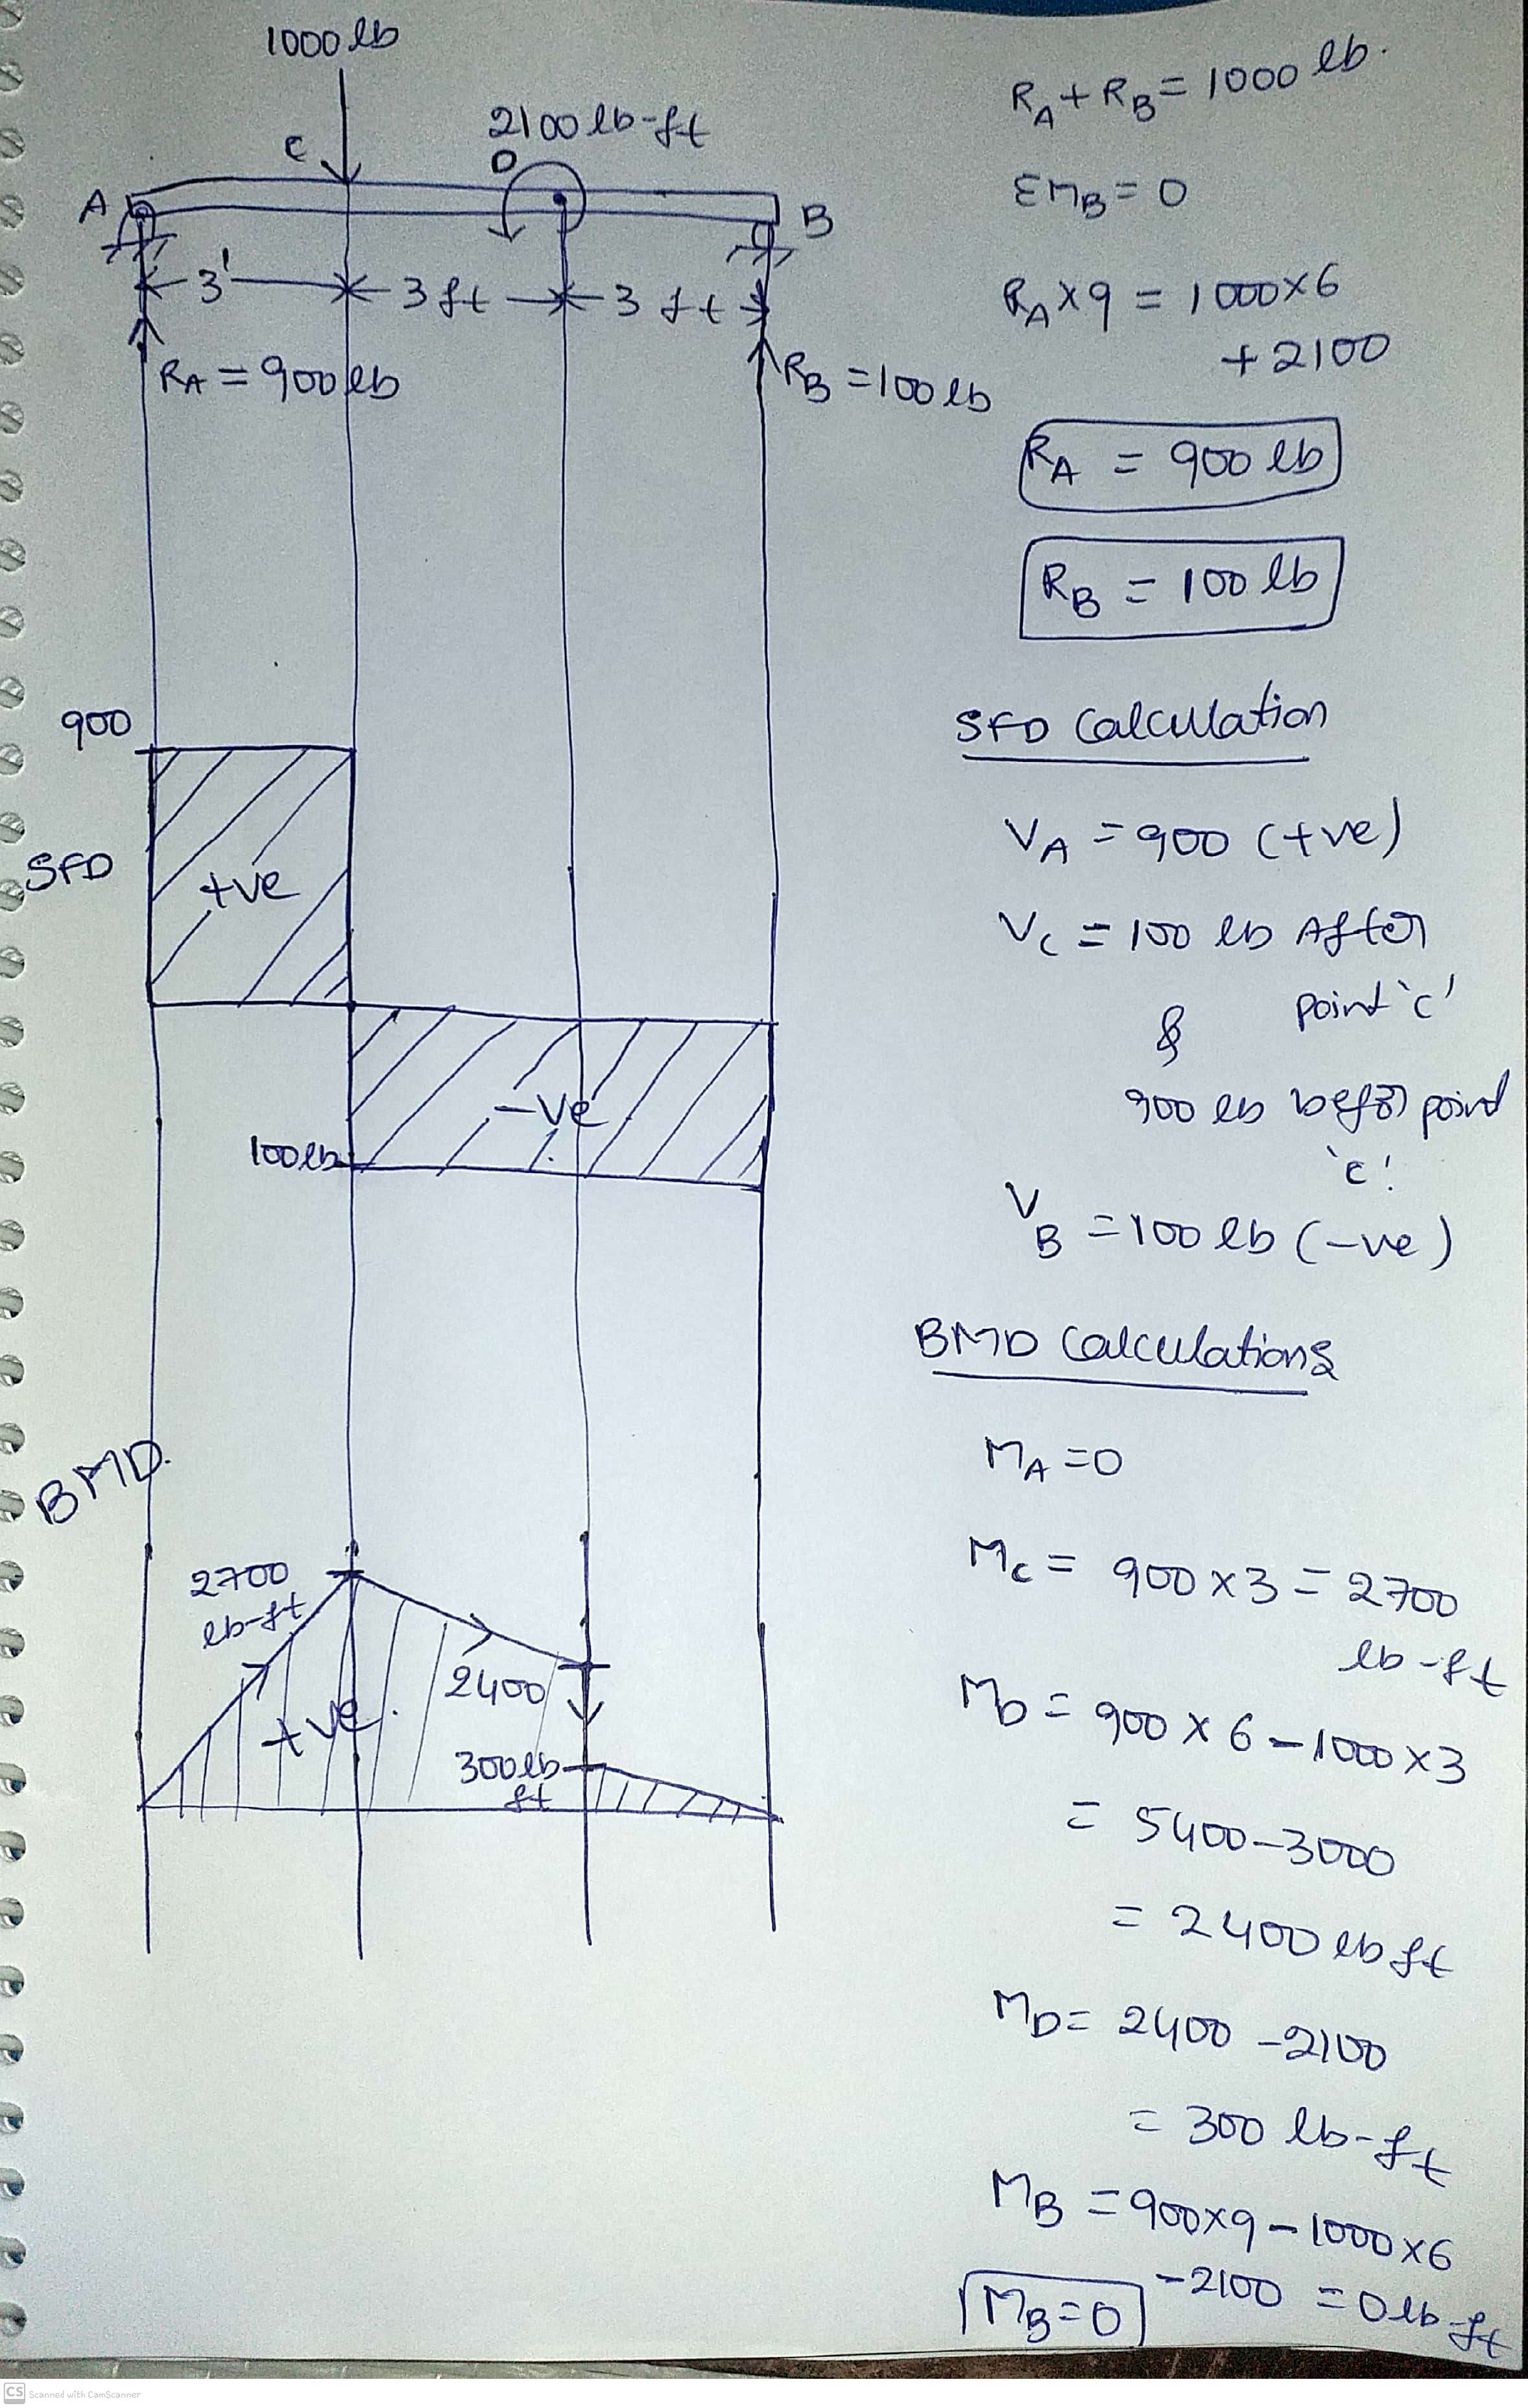 1000 lb
C
2100 lb-ft
D
A
B
3'
3 ft
3 ft
RA = 900 lb
RB = 100 lb
RA + RB = 1000 lb.
ΣMB = 0
RA x 9 = 1000x6
+ 2100
RA = 900 lb
RB = 100 lb
900
SFD
+ve
-ve
100lb
SFD Calculation
VA = 900 (+ve)
VC = 100 lb After
point 'c'
&
900 lb befor point
'c'
VB = 100 lb (-ve)
BMD.
2700
lb-ft
+ve.
2400
300lb-
ft
BMD Calculations
MA = 0
MC = 900 x 3 = 2700
lb-ft
MD = 900 x 6 - 1000 x 3
= 5400 - 3000
= 2400 lb ft
MD = 2400 - 2100
= 300 lb-ft
MB = 900x9 - 1000 x6
- 2100 = 0 lb-ft
MB = 0
CS Scanned with CamScanner